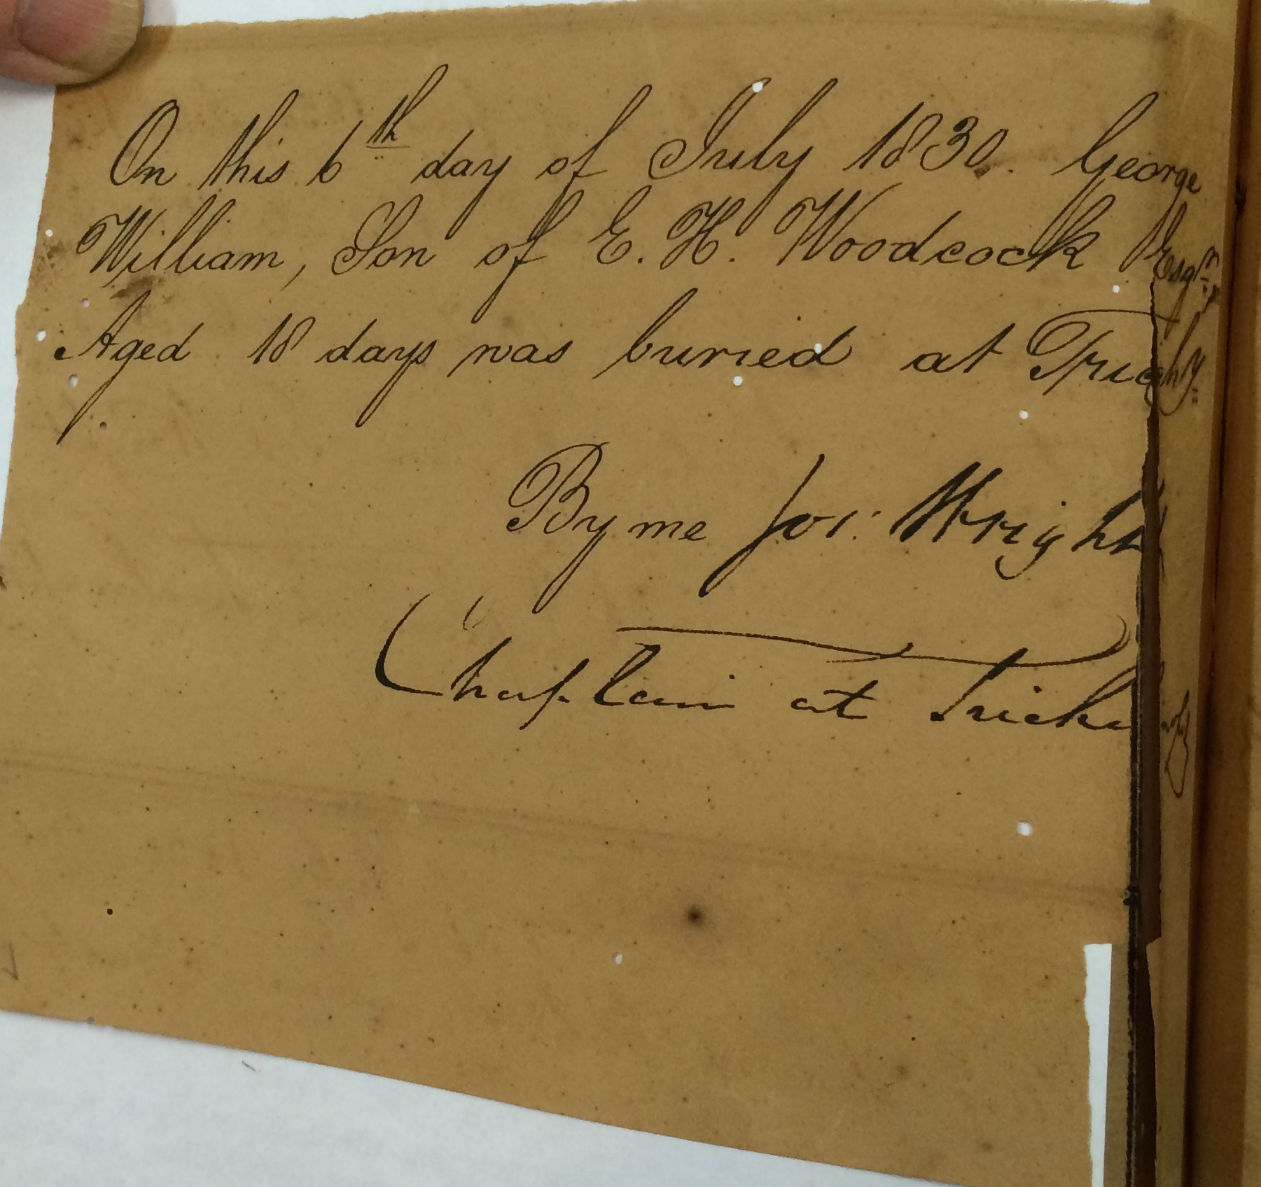 On this 6th day of July 1830. George
William, Son of E. H. Woodcock Esqr.
Aged 18 days was buried at
By me Jos: Wright
Chaplain at